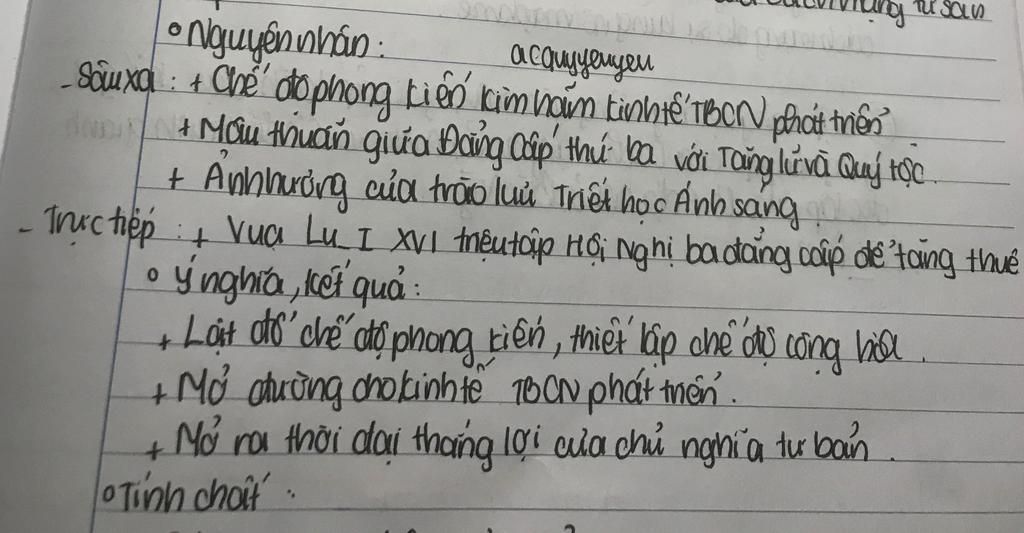 tư sản
Nguyên nhân:
acquyyeuyeu
- Sâu xa: + Chế độ phong kiến kìm hãm kinh tế TBCN phát triển
+ Mâu thuẫn giữa Đẳng cấp thứ ba với Tăng lữ và Quý tộc.
+ Ảnh hưởng của trào lưu Triết học Ánh sáng
- Trực tiếp: + Vua Lu_I XVI triệu tập Hội Nghị ba đẳng cấp để tăng thuế
Ý nghĩa, kết quả:
+ Lật đổ chế độ phong kiến, thiết lập chế độ cộng hòa.
+ Mở đường cho kinh tế TBCN phát triển.
+ Mở ra thời đại thắng lợi của chủ nghĩa tư bản.
Tính chất: